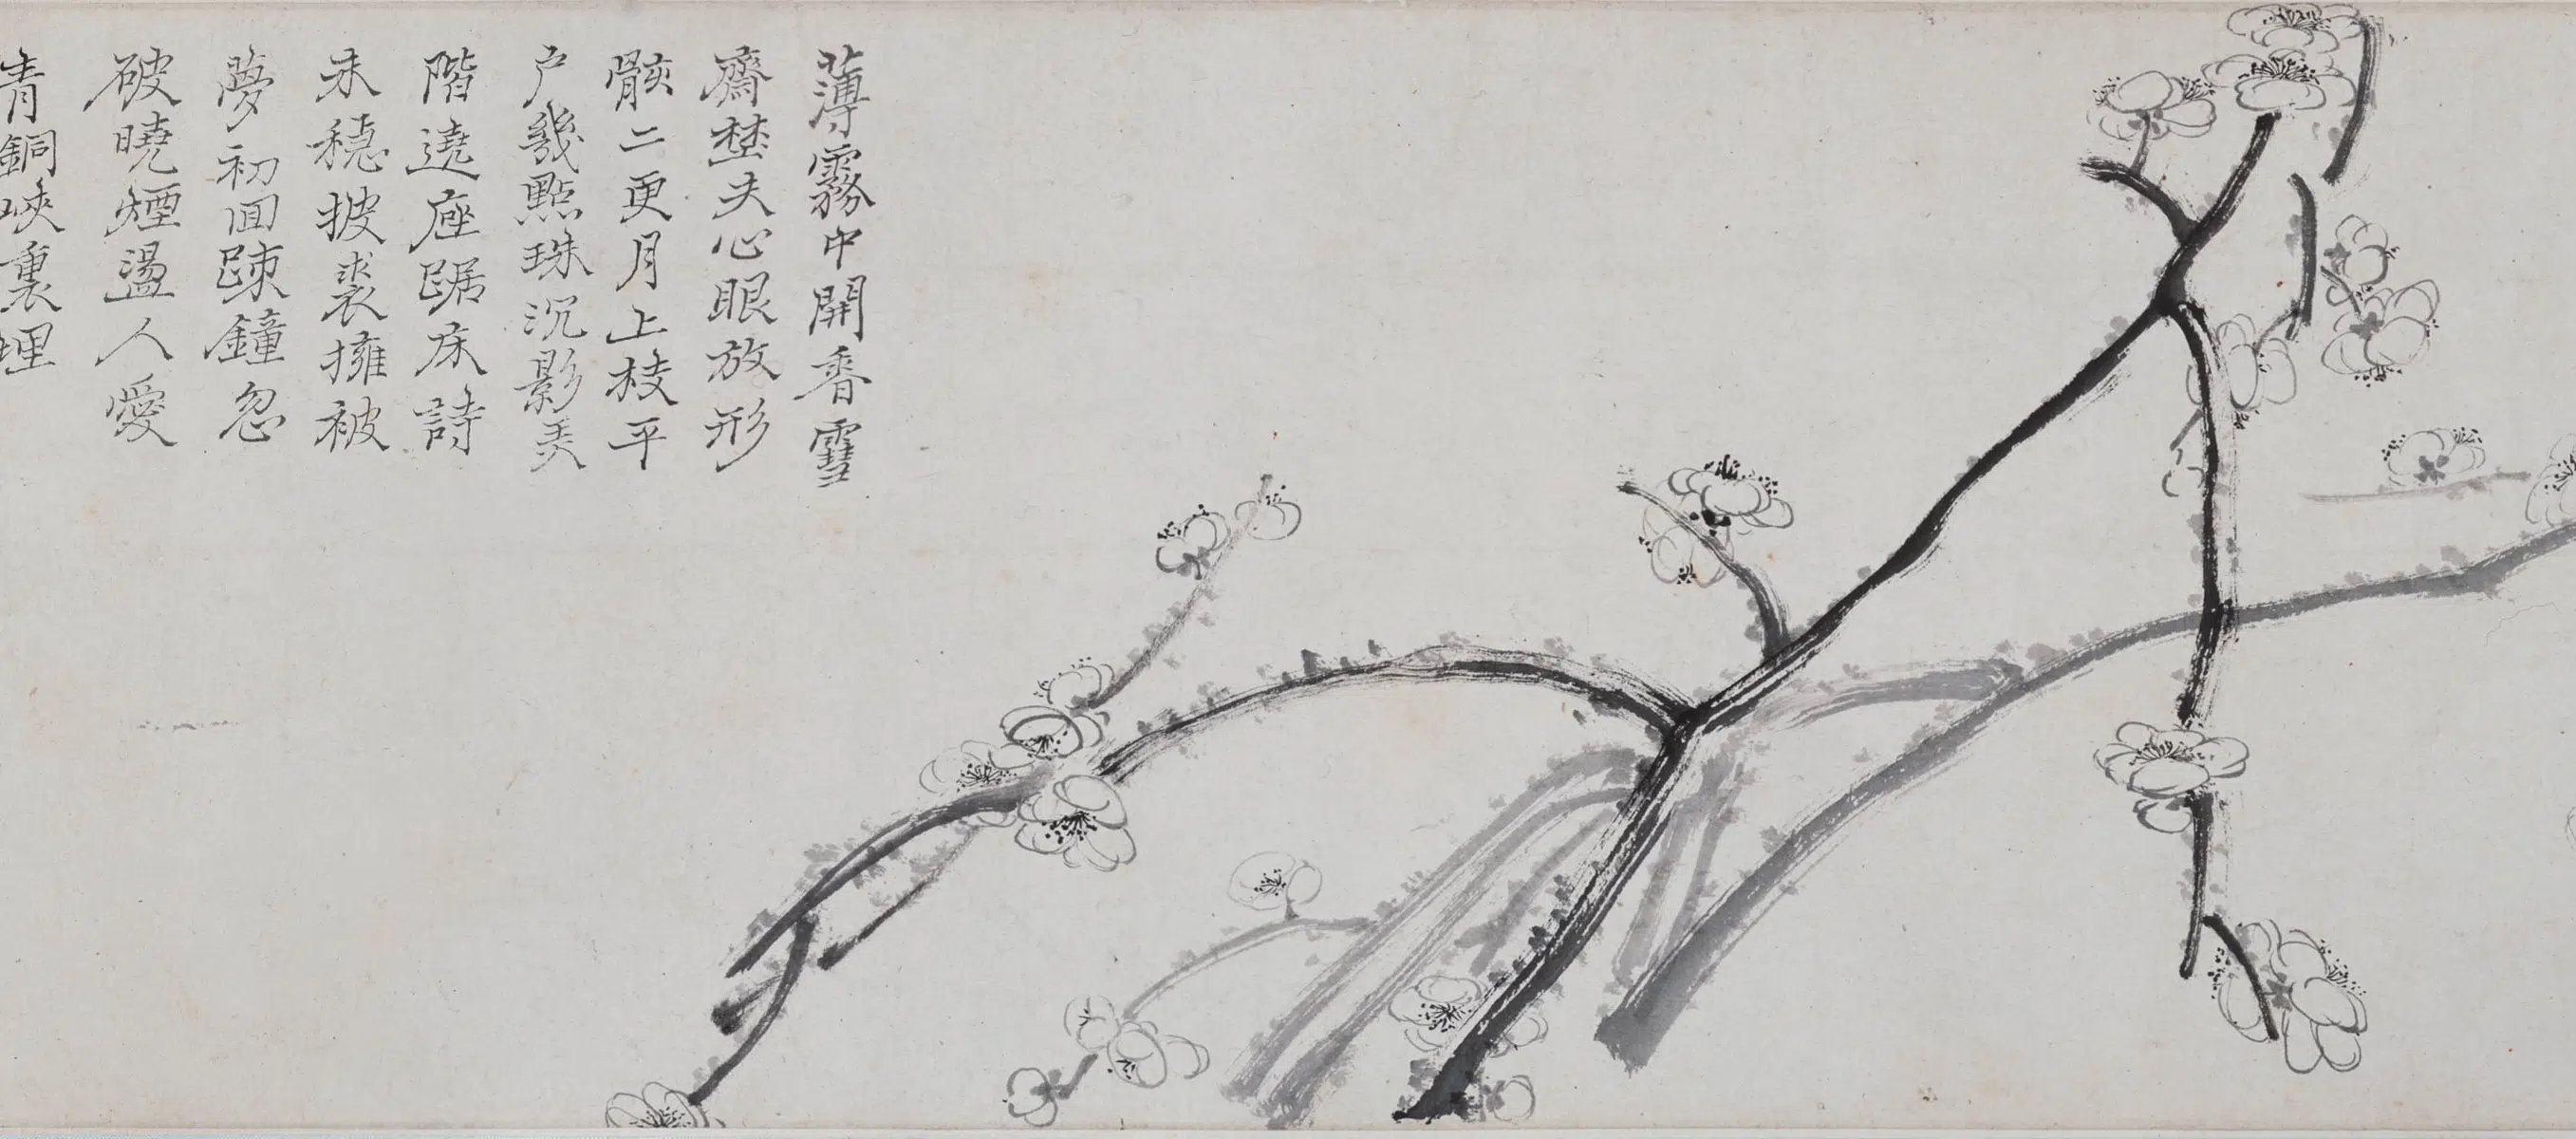 薄霧中開香雪
齋埜夫心眼放形
骸二更月上枝平
户幾點珠沉影美
階遶座踞床詩
未穏披裘擁被
夢初回踈鐘忽
破曉煙盪人愛
青銅峽裏埋